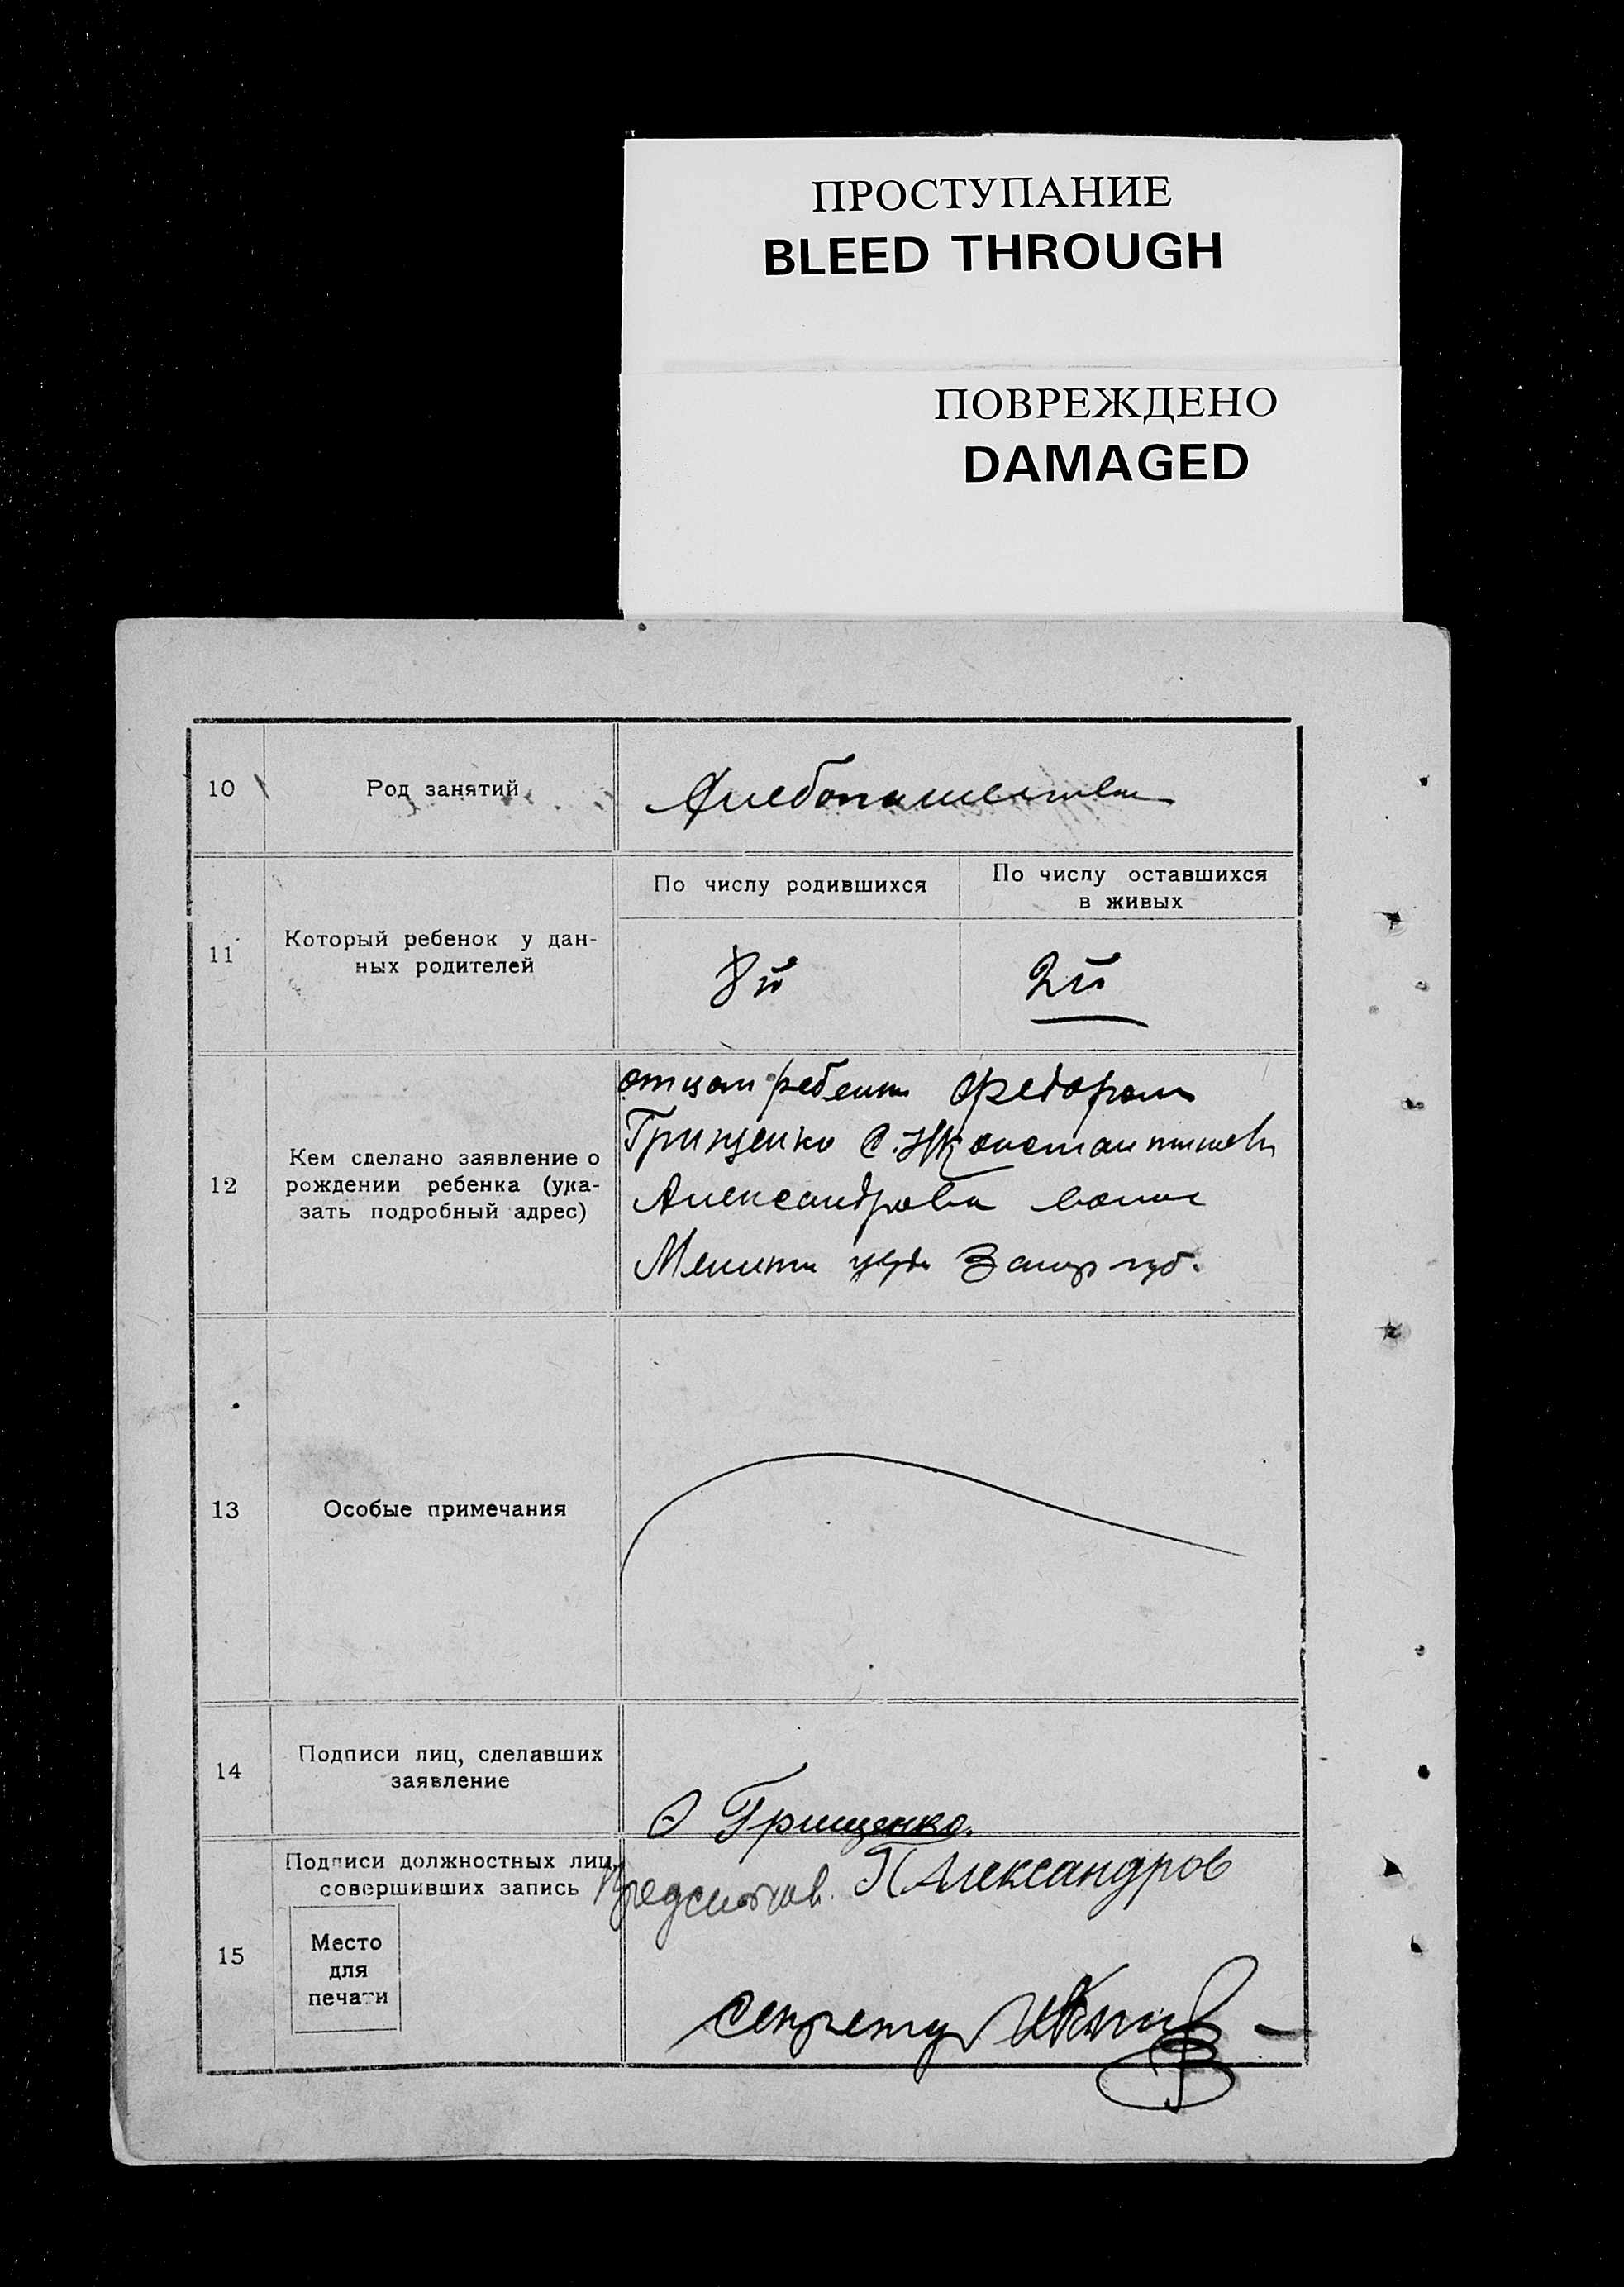 ПРОСТУПАНИЕ
BLEED THROUGH
ПОВРЕЖДЕНО
DAMAGED
10
Род занятий
Хлебопашество
11
Который ребенок у дан-
ных родителей
По числу родившихся
По числу оставшихся
в живых
8й
2й
12
Кем сделано заявление о
рождении ребенка (ука-
зать подробный адрес)
отцом ребенка Федором
Грищенко С. Константиновка
Александровка волос
Мелит уезда Запор губ.
13
Особые примечания
14
Подписи лиц, сделавших
заявление
Ѳ Грищенко.
15
Подписи должностных лиц,
совершивших запись
Место
для
печати
Александров
секретарь